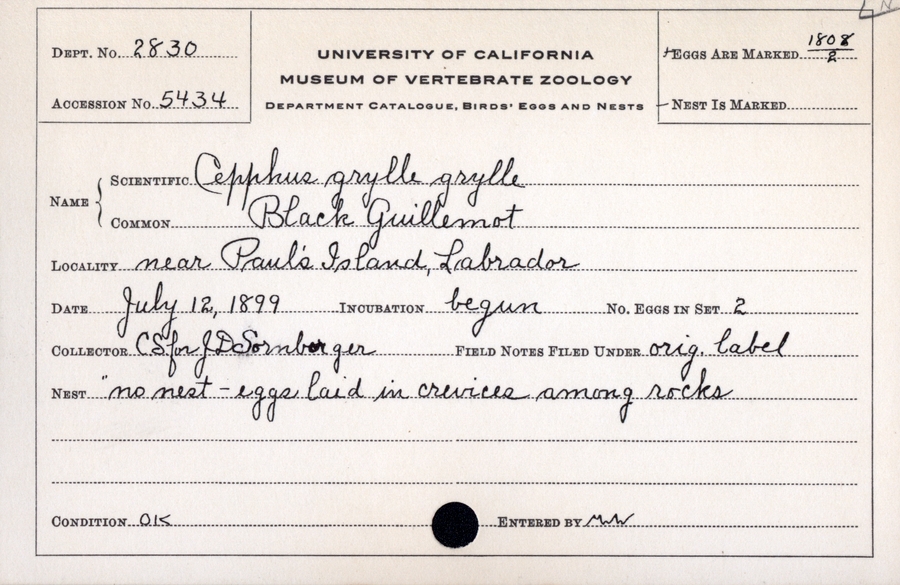 Dept. No. 2830
Accession No. 5434
University of California
Museum of Vertebrate Zoology
Department Catalogue, Birds' Eggs and Nests
Eggs Are Marked 1808/2
Nest Is Marked
Name
Scientific Cepphus grylle grylle
Common Black Guillemot
Locality near Paul's Island, Labrador
Date July 12, 1899 Incubation begun No. Eggs in Set 2
Collector CS for JD Sornborger Field Notes Filed Under orig. label
Nest "no nest - eggs laid in crevices among rocks
Condition OK Entered by